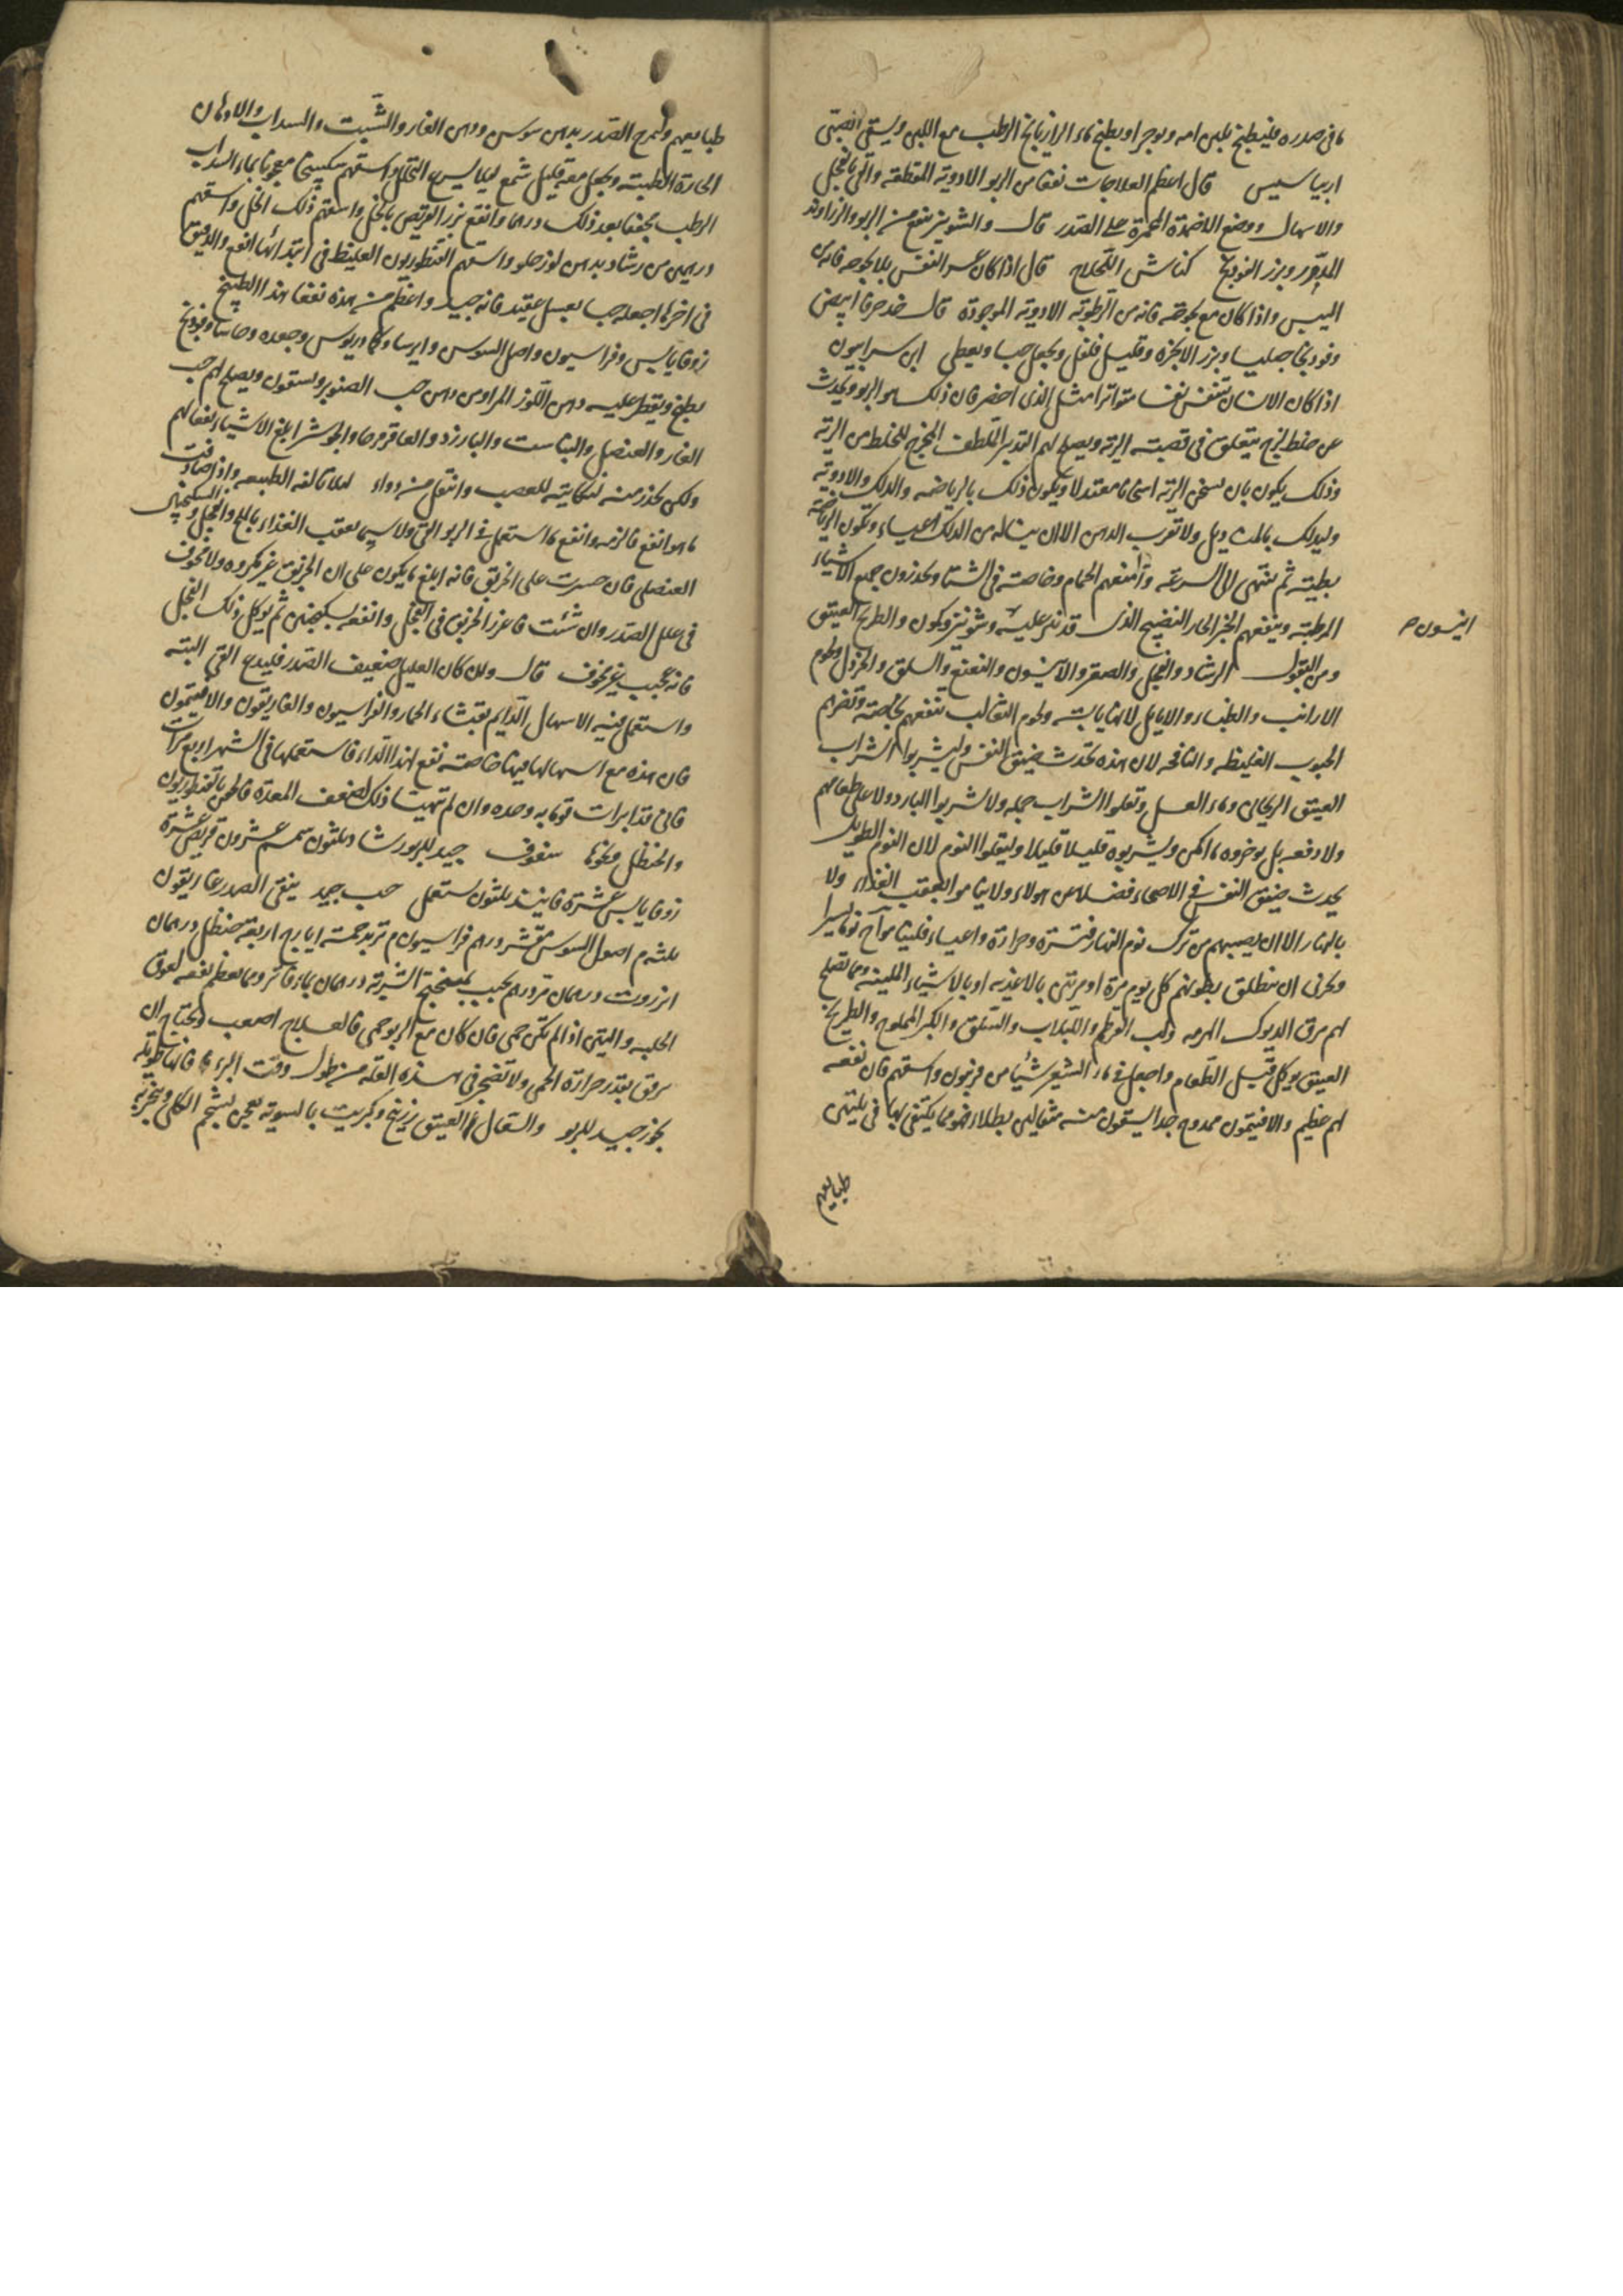 ما في صدره فليطبخ بلبن امه ويوجر او يطبخ بماء الرازيانج الرطب مع اللبن ويسقى الصبي
اريباسيس قال اعظم العلاجات نفعا من الربو الادوية المقطعة والقي بالفجل
والاسهال ووضع الاضمدة المحمرة على الصدر قال والشونيز ينفع من الربو والزراوند
المدور وبزر الفودنج كناش قال اذا كان عسر النفس بلا بحوحه فانه من
اليبس واذا كان مع بحوحة فانه من الرطوبة الادوية الموجودة قال خذ حرفا ابيض
وفودنجا جبليا وبزر الانجرة وقليل فلفل ويجعل حبا ويعطى ابن سرابيون
اذا كان الانسان يتنفس نفسا متواترا مثل الذي احضر فان ذلك هو الربو ويحدث
عن خلط لزج يتعلق في قصبة الرية ويصلح لهم التدبير الملطف المخرج للخلط من الرية
وذلك يكون بان يسخن الرية اسخانا معتدلا ويكون ذلك بالرياضه والدلك والادوية
وليدلك بالمناديل ولا تقرب الدهن الا ان يناله من الدلك اعياء وتكون الرياضة
بطيئة ثم تنتهي الى السرعة وامنعهم الحمام وخاصة في الشتا ويحذرون جميع الاشياء
المرطبة وينفعهم الخبز الحار النضيج الذي قد نثر عليه شونيز وكمون والطريخ العتيق
انيسون ص
ومن البقول الرشاد والفجل والصعتر والانيسون والنعنع والسلق والخردل ولحوم
الارانب والظباء والايايل لانها يابسة ولحوم الثعالب تنفعهم بخاصة وتضرهم
الحبوب الغليظه والنافخه لان هذه تحدث ضيق النفس وليشربوا الشراب
العتيق الريحاني وماء العسل وتقلوا الشراب جمله ولا تشربوا البارد ولا على طعامهم
ولا دفعه بل يوخروه ما امكن ويشربوه قليلا قليلا وليقلوا النوم لان النوم الطويل
يحدث ضيق النفس في الاصحاء فضلا عن هولاء ولا يناموا بعقب الغذاء ولا
بالنهار الا ان يصيبهم من ترك نوم النهار فترة وحرارة واعياء فليناموا نوما يسيرا
وتحرى ان تنطلق بطونهم كل يوم مرة او مرتين بالاغذيه او بالاشياء الملينه ومما تصلح
لهم مرق الديوك الهرمه ولب القرطم واللبلاب والسلق والكبر المملوح والطريخ
العتيق يوكل قبل الطعام واجعل في ماء الشعير شيئا من فربيون واسقهم فان نفعه
لهم عظيم والافتيمون ممدوح جدا يسقون منه مثقالين بطلاء فهو مما يكتفى بها في تليين
طبايعهم
طبايعهم وتمرخ الصدر بدهن سوسن ودهن الغار والشبت والسداب والادهان
الحارة اللطيفة ويجعل معه قليل شمع ليلا يسرع التحلل واسقهم سكبينجا معجونا بماء السداب
الرطب مجففا بعد ذلك درهما وانقع بزر القريص بالخل واسقهم ذلك الخل واسقهم
درهمين من رشاد بدهن لوز حلو واسقهم القنطوريون الغليظ في ابتدائها انفع والدقيق
في اخرها اجعله حبا بعسل عقيد فانه جيد واعظم من هذه نفعا هذا الطبيخ
زوفا يابس وفراسيون واصل السوس وايرسا وكمادريوس وجعده وحاشا وفودنج
يطبخ ويقطر عليه دهن اللوز المر او من دهن حب الصنوبر ويسقون ويصلح لهم حب
الغار والعنصل والبارزد والعاقرقرحا والجوشير ابلغ الاشياء نفعا لهم
ولكن يحذر منه لنكايته للعصب وانتقل من دواء ليلا تالفه الطبيعه واذا صادفت
ما هو انفع فالزمه وانفع ما استعمل في الربو القي ولا سيما بعقب الغذاء بالملح والفجل والسكنجبين
العنصلي فان صبرت على الخربق فانه ابلغ ما يكون على ان الخربق غير مكروه ولا مخوف
في علل الصدر وان شئت فاغرز الخربق في الفجل وانقعه بسكنجبين ثم يوكل ذلك الفجل
فانه عجيب غير مخوف قال وان كان العليل ضعيف الصدر فليدع القي البته
واستعمل فيه الاسهال الدايم بقثاء الحمار والفراسيون والغاريقون والافتيمون
فان هذه مع اسهالها فيها خاصة نفع لهذا الداء فاستعملها في الشهر اربع مرات
فاني قد ابرات قوما به وحده وان لم تهيا ذلك لضعف المعدة فالحقن بالقنطوريون
والحنظل ونحوها سفوف جيد للربو رشاد ثلثون سمسم عشرون قريص عشرة
زوفا يابس عشرة فانيذ ثلثون يستعمل حب جيد ينقي الصدر غاريقون
ثلثه م اصول السوس مقشر درهم فراسيون م تربد خمسة ايارج اربعه حنظل درهمان
انزروت درهمان مر درهم يحبب بميفختج الشربة درهمان بماء فاتر ومما يعظم نفعه لعوق
الحلبه والتين اذا لم تكن حمى فان كان مع الربو حمى فالعلاج اصعب ويحتاج ان
ترفق بقدر حرارة الحمى ولا تضجر في هذه العلة من طول وقت البرء فانها طويلة
بخور جيد للربو والسعال العتيق زرنيخ وكبريت بالسويه يعجن بشحم الكلى ويبخر به